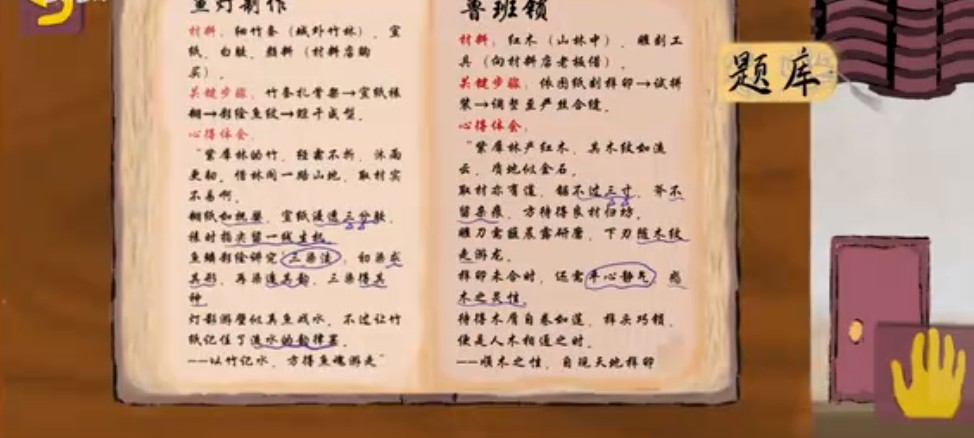 鱼灯制作
材料：细竹条（城外竹林）、宣
纸、白胶、颜料（材料店购
买）。
关键步骤：竹条扎骨架→宣纸裱
糊→彩绘鱼纹→晾干成型。
心得体会：
“紫摩林的竹，经霜不折，沐雨
更韧，惜林间一路山地，取材实
不易啊。
糊纸如抚婴，宣纸浸透三分胶，
裱时指尖留一线生机。
鱼鳞彩绘讲究“三染法，初染成
其形，再染追其韵，三染得其
神。
灯影游壁似真鱼戏水，不过让竹
纸记住了流水的韵律罢。
——以竹记水，方得鱼魂游走”
鲁班锁
材料：红木（山林中）、雕刻工
具（向材料店老板借）。
关键步骤：依图纸刻榫卯→试拼
装→调整至严丝合缝。
心得体会：
“紫摩林产红木，其木纹如流
云，质地似金石。
取材亦有道，锯不过三寸，斧不
留杂痕，方待得良材归坊。
雕刀需蘸晨露研磨，下刃随木纹
走游龙。
榫卯未合时，还需平心静气，感
木之灵性。
待得木屑自卷如莲，榫头巧锁，
便是人木相通之时。
——顺木之性，自现天地榫卯
题库